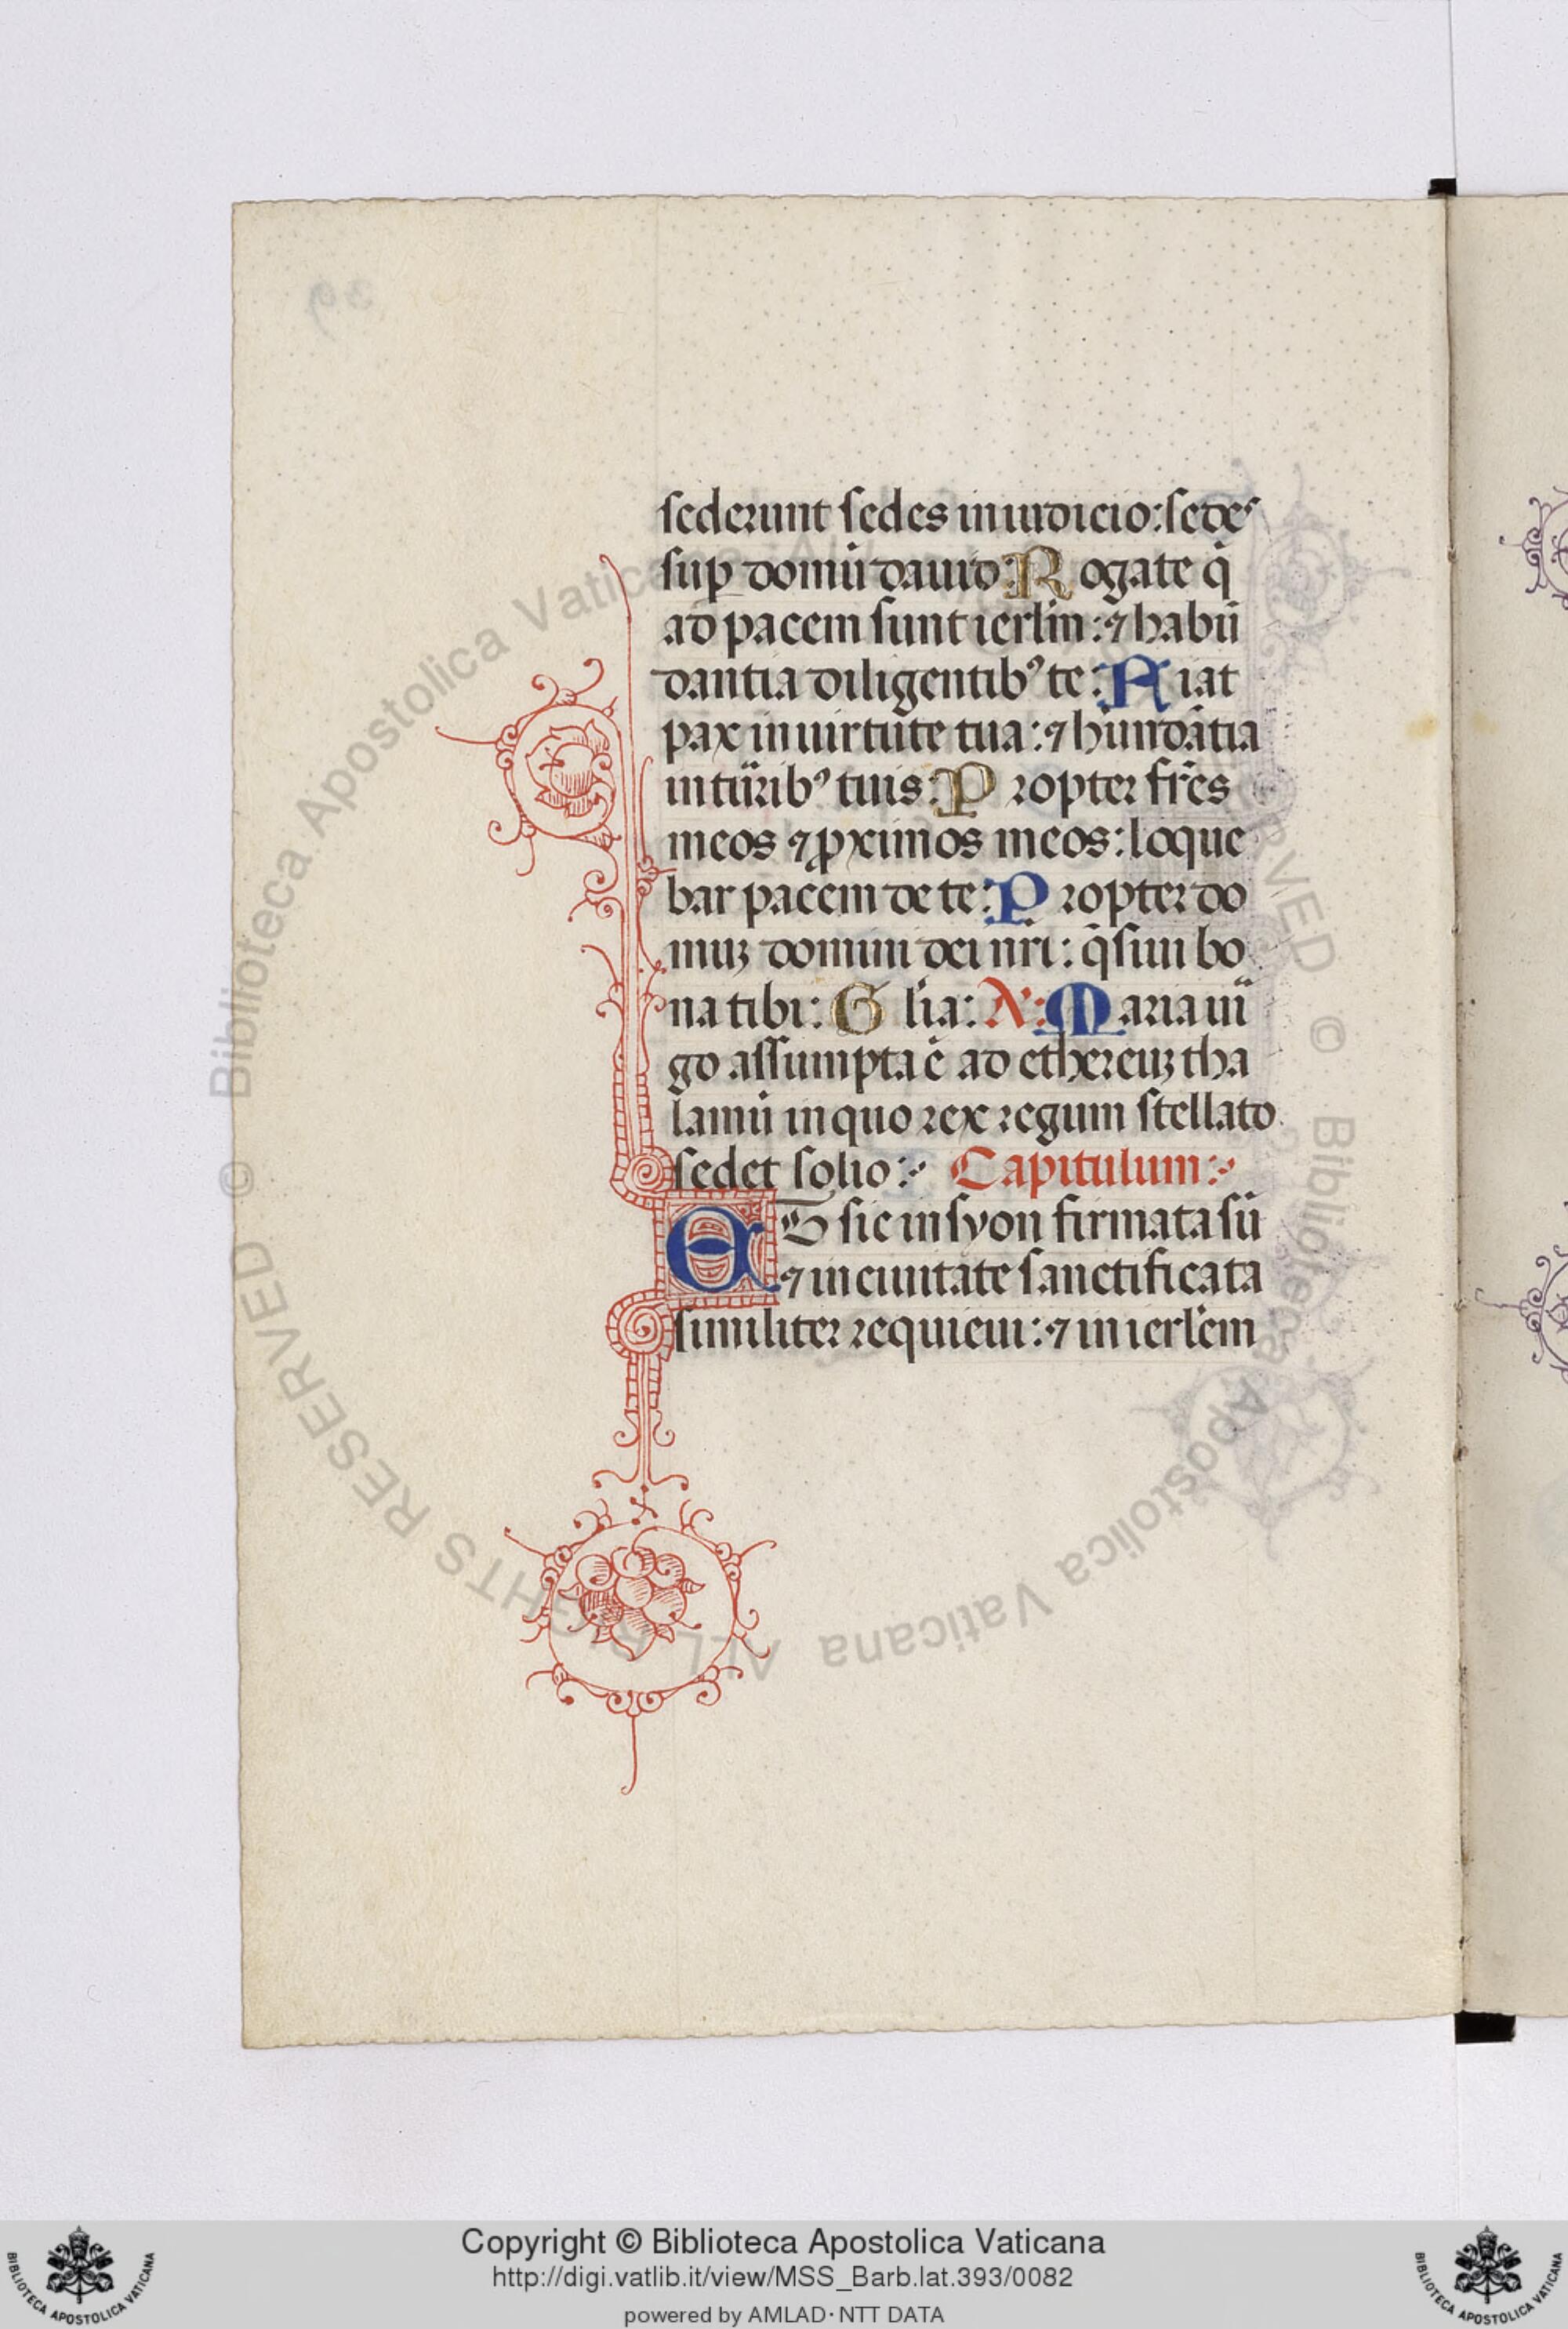 sederunt sedes in iudicio: sedes
sup domū dauid: Rogate q̄
ad pacem sunt ierlm̄: ⁊ habū
dantia diligentibꝰ te: Fiat
pax in uirtute tua: ⁊ hūndātia
in turribꝰ tuis: Propter fr̄es
meos ⁊ ꝓximos meos: loque
bar pacem de te: Propter do
muꝫ domini dei nr̄i: q̄siui bo
na tibi: Gl̄ia: A: Maria uī
go assumpta ē ad ethereuꝫ tha
lamū in quo rex regum stellato
sedet solio: Capitulum:
ET sic in syon firmata sū
⁊ in ciuitate sanctificata
similiter requieui: ⁊ in ierl̄em
© Biblioteca Apostolica Vaticana ALL RIGHTS RESERVED
© Biblioteca Apostolica Vaticana
Copyright © Biblioteca Apostolica Vaticana
http://digi.vatlib.it/view/MSS_Barb.lat.393/0082
powered by AMLAD·NTT DATA
BIBLIOTECA APOSTOLICA VATICANA
BIBLIOTECA APOSTOLICA VATICANA